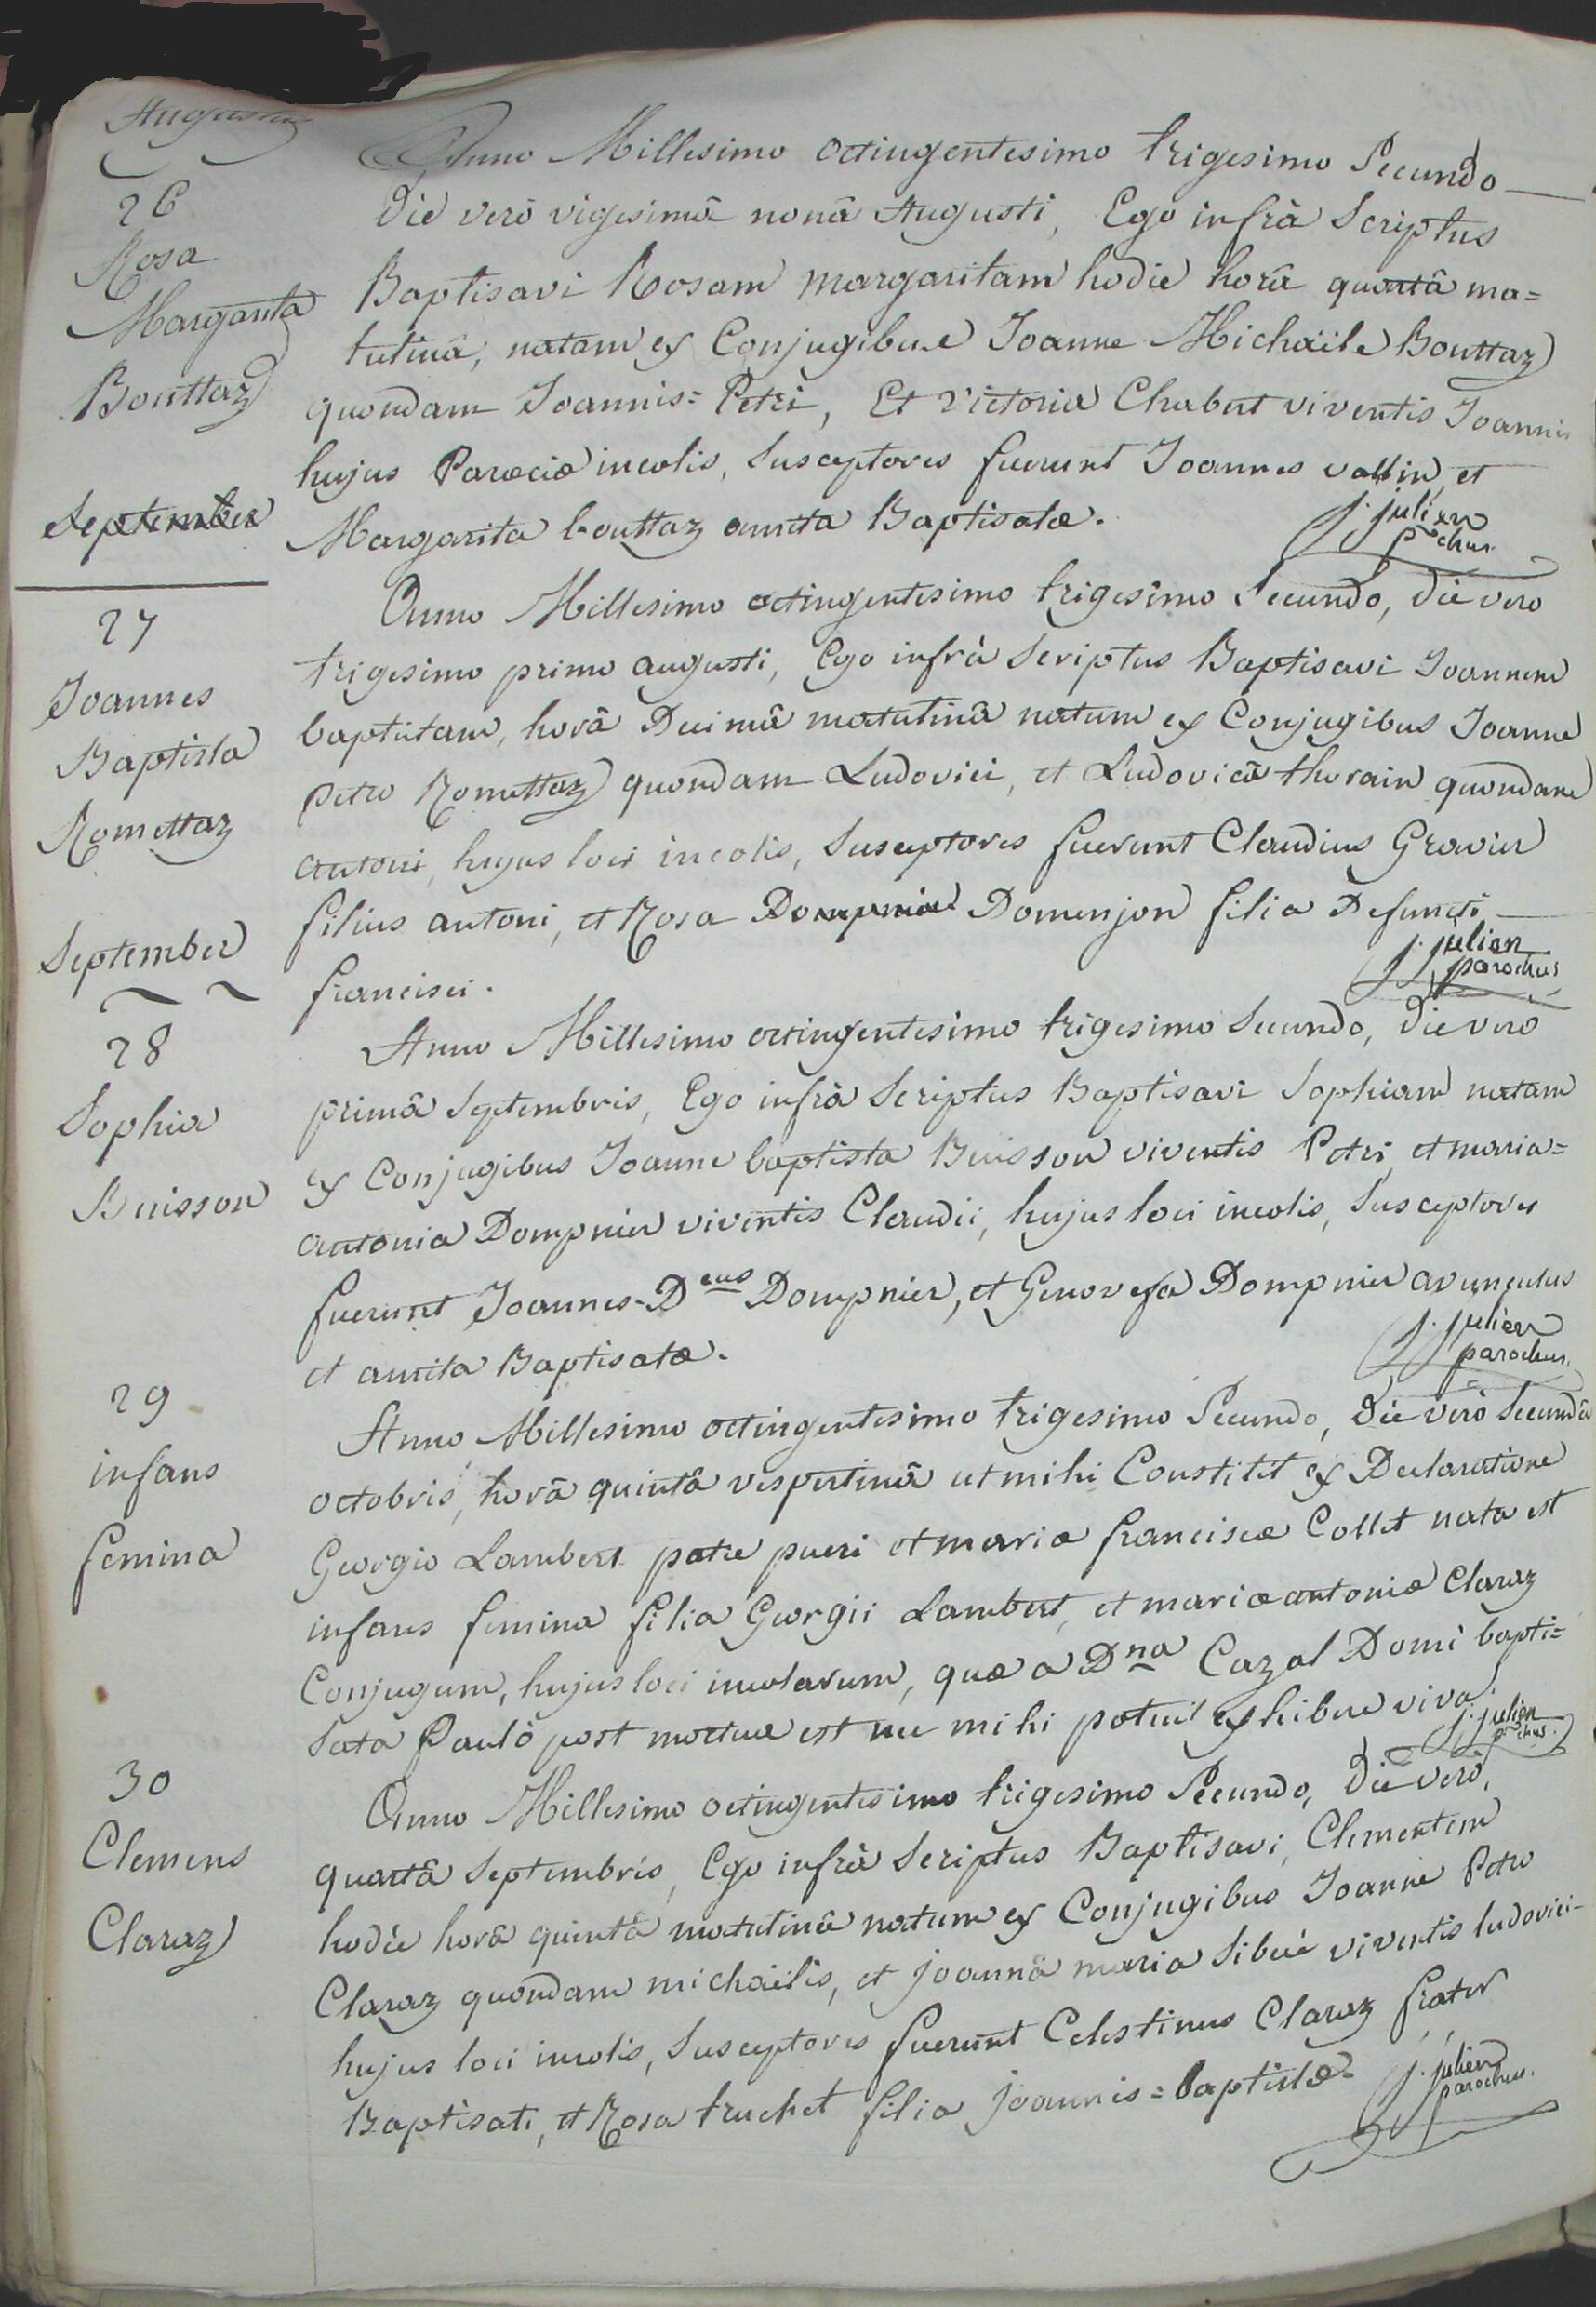 Augustus
26
Rosa
Margarita
Bouttaz
Anno Millesimo octingentesimo trigesimo Secundo
die verò vigesimâ nonâ Augusti, Ego infrà Scriptus
Baptisavi Rosam margaritam hodie horâ quartâ ma=
tutinâ, natam ex Conjugibus Joanne Michaële Bouttaz
quondam Joannis=Petri, Et victoria Chabert viventis Joannis
hujus Parœciæ incolis, Susceptores fuerunt Joannes vallin, et
Margarita bouttaz amita Baptisatæ.
j. julien
p~chus.
September
27
Joannes
Baptista
Romettaz
Anno Millesimo octingentesimo trigesimo Secundo, die vero
trigesimo primo augusti, Ego infrà Scriptus Baptisavi Joannem
baptistam, horâ Decimâ matutinâ natum ex Conjugibus Joanne
petro Romettaz quondam Ludovici, et Ludovicâ thorain quondam
antoni, hujus loci incolis, Susceptores fuerunt Claudius Gravier
filius antoni, et Rosa Dompnier Domenjon filia Defuncti
francisci.
j. julien
parochus
September
28
Sophia
Buisson
Anno Millesimo octingentesimo trigesimo Secundo, die verò
primâ Septembris, Ego infrà Scriptus Baptisavi Sophiam natam
ex Conjugibus Joanne baptista Buisson viventis Petri, et maria=
antonia Dompnier viventis Claudii, hujus loci incolis, Susceptores
fuerunt Joannes-Deus Dompnier, et Genovefa Dompnier avunculus
et amita Baptisatæ.
j. julien
parochus.
29
infans
femina
Anno Millesimo octingentesimo trigesimo Secundo, die verò Secundâ
octobris, horâ quintâ vespertinâ ut mihi Constitit ex Declaratione
Georgio Lambert patre pueri et mariæ franciscæ Collet nata est
infans femina filia Georgii Lambert, et mariæ antoniæ Claraz
Conjugum, hujus loci incolarum, quæ a Dna Cazal Domi bapti=
sata Paulò post mortua est nec mihi potuit exhibere viva.
j. julien
p~chus.
30
Clemens
Claraz
Anno Millesimo octingentesimo trigesimo Secundo, die verò,
quartâ Septembris, Ego infrà Scriptus Baptisavi, Clementem
hodie horâ quintâ matutinâ natum ex Conjugibus Joanne Petro
Claraz quondam michaëlis, et joannâ maria Sibué viventis ludovici-
hujus loci incolis, Susceptores fuerunt Celestinus Claraz frater
Baptisati, et Rosa truchet filia joannis=baptistæ
j. julien
parochus.